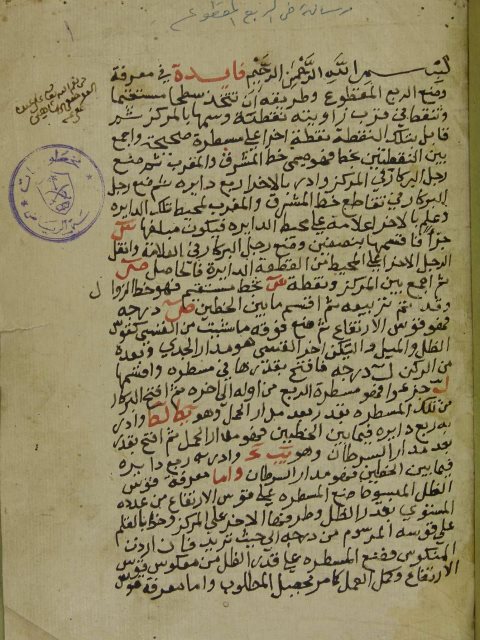 رسالة في الربع المقطوع
بسم الله الرحمن الرحيم فايدة في معرفة
وضع الربع المقطوع وطريقه ان تتخذ سطحا مستقيما
وتنقط في قرب زاويته نقطة وسمها بالمركز ثم
قابل بتلك النقطة نقطة اخرى على مسطرة صحيحة واجمع
بين النقطتين بخط فهو خط المشرق والمغرب ثم ضع
رجل البركار في المركز وادر بالاخر ربع دايره ثم ضع رجل
البركار في تقاطع خط المشرق والمغرب لمحيط تلك الدايره
وعلم بالاخر علامة على محيط الدايره فيكون مبلغها
جزأ فاقسمها بنصفين وضع رجل البركار في العلامة وانقل
الرجل الاخر على المحيط من القطعة الدايرة فالحاصل
ثم اجمع بين المركز ونقطة بخط مستقيم فهو خط الزوال
وقد تم تربيعه ثم اقسم ما بين الخطين درجه
فهو قوس الارتفاع ثم ضع فوقه ما شئت من القسي كقوس
الظل والميل وليكن اخر القسي هو مدار الجدي وبعده
من المركز درجه فافتح بقدرها في مسطره واقسمها
جزءا فهو مسطرة الربع من اوله الى اخره ثم افتح البركار
من تلك المسطره بقدر بعد مدار الحمل وهو وادر
به ربع دايره فيما بين الخطين فهو مدار الحمل ثم افتح بقدر
بعد مدار السرطان وهو وادر به ربع دايره
فيما بين الخطين فهو مدار السرطان واما معرفة قوس
الظل المبسوط ضع المسطره على قوس الارتفاع من عدده
المستوي بقدر الظل وطرفها الاخر على المركز وخط بالقلم
على قوسه المرسوم من درجه الى حيث تريد فان اردت
المنكوس فضع المسطره على قدر الظل من معكوس قوس
الارتفاع وكمل العمل كما مر يحصل المطلوب واما معرفة قوس